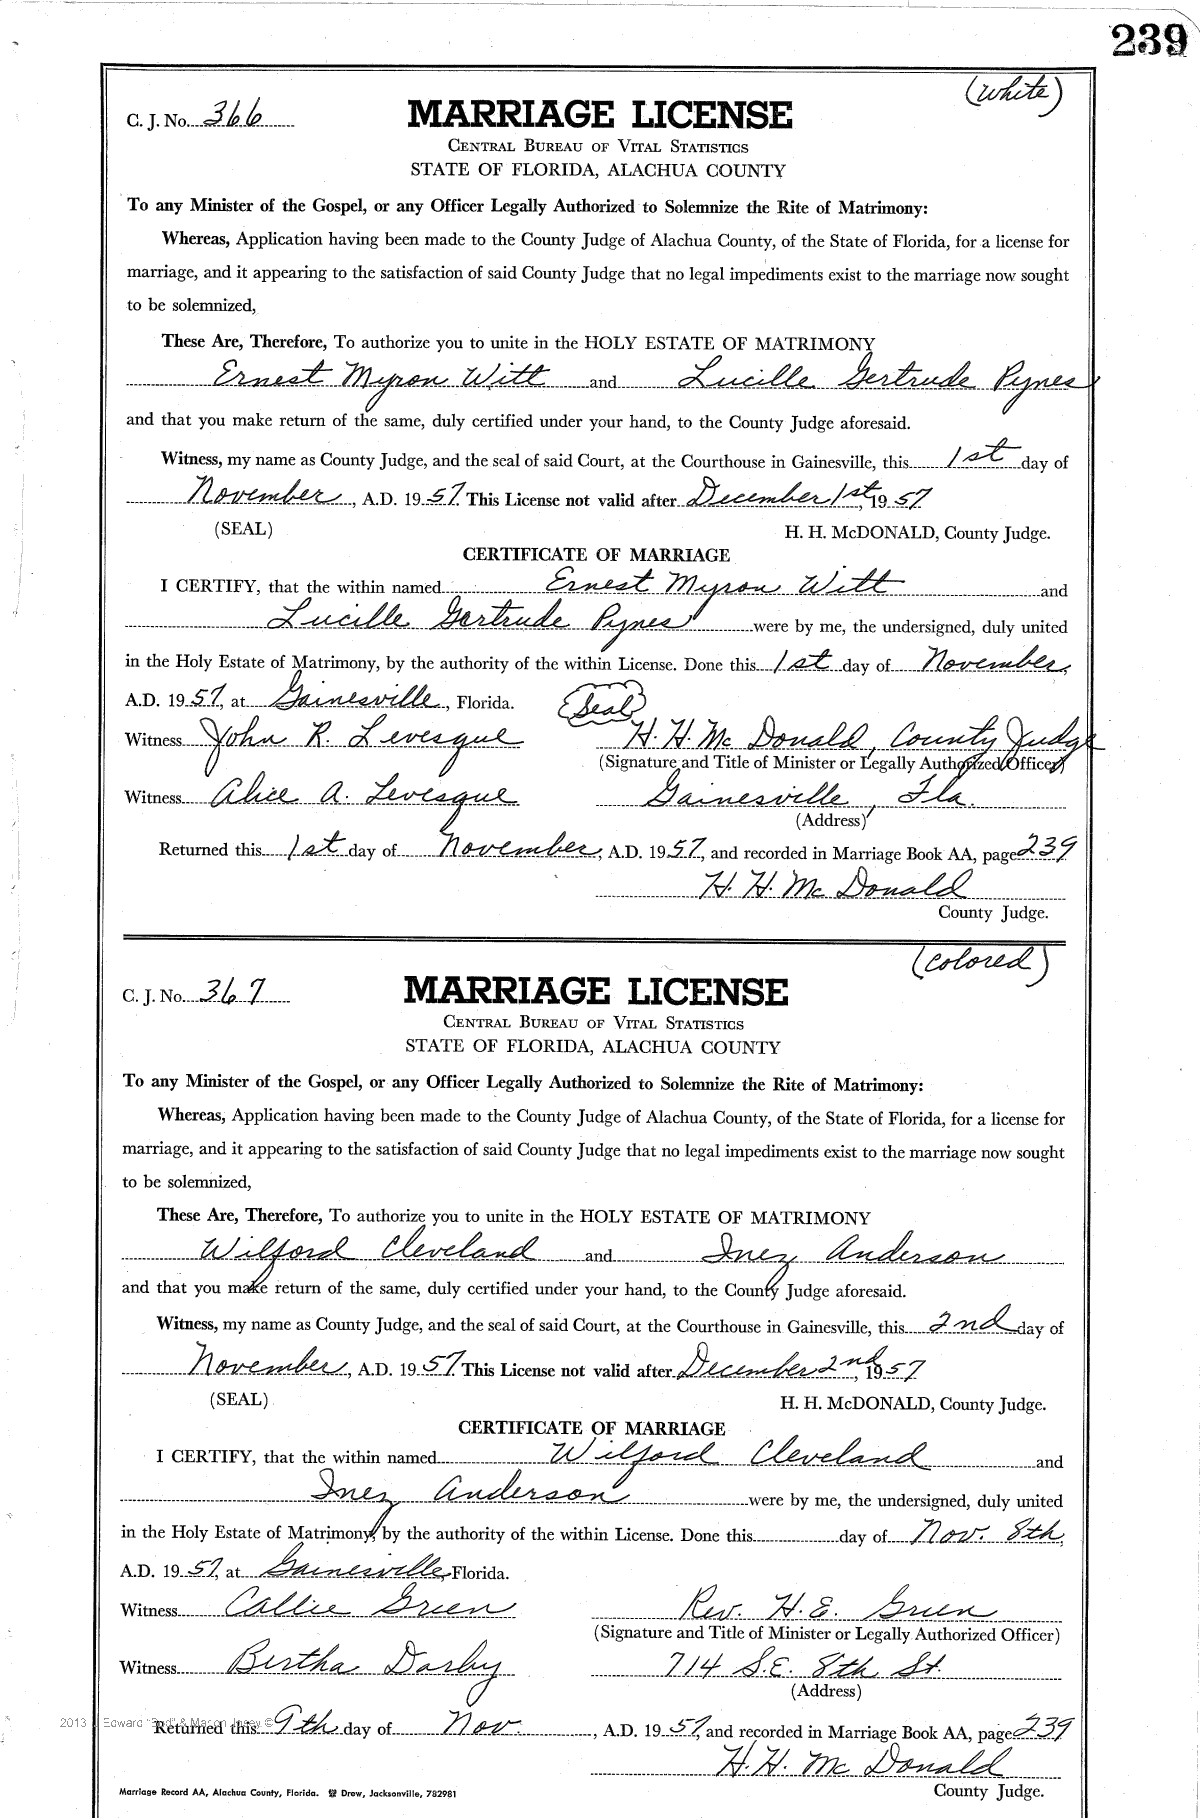 239
(white)
C. J. No. 366
MARRIAGE LICENSE
CENTRAL BUREAU OF VITAL STATISTICS
STATE OF FLORIDA, ALACHUA COUNTY
To any Minister of the Gospel, or any Officer Legally Authorized to Solemnize the Rite of Matrimony:
Whereas, Application having been made to the County Judge of Alachua County, of the State of Florida, for a license for
marriage, and it appearing to the satisfaction of said County Judge that no legal impediments exist to the marriage now sought
to be solemnized,
These Are, Therefore, To authorize you to unite in the HOLY ESTATE OF MATRIMONY
Ernest Myron Witt and Lucille Gertrude Pynes
and that you make return of the same, duly certified under your hand, to the County Judge aforesaid.
Witness, my name as County Judge, and the seal of said Court, at the Courthouse in Gainesville, this 1st day of
November, A.D. 1957. This License not valid after December 1st, 1957
(SEAL) H. H. McDONALD, County Judge.
CERTIFICATE OF MARRIAGE
I CERTIFY, that the within named Ernest Myron Witt and
Lucille Gertrude Pynes were by me, the undersigned, duly united
in the Holy Estate of Matrimony, by the authority of the within License. Done this 1st day of November,
A.D. 1957, at Gainesville, Florida. Seal
Witness John R. Levesque H. H. McDonald, County Judge
(Signature and Title of Minister or Legally Authorized Officer)
Witness Alice A. Levesque Gainesville, Fla.
(Address)
Returned this 1st day of November, A.D. 1957, and recorded in Marriage Book AA, page 239
H. H. McDonald
County Judge.
(colored)
C. J. No. 367
MARRIAGE LICENSE
CENTRAL BUREAU OF VITAL STATISTICS
STATE OF FLORIDA, ALACHUA COUNTY
To any Minister of the Gospel, or any Officer Legally Authorized to Solemnize the Rite of Matrimony:
Whereas, Application having been made to the County Judge of Alachua County, of the State of Florida, for a license for
marriage, and it appearing to the satisfaction of said County Judge that no legal impediments exist to the marriage now sought
to be solemnized,
These Are, Therefore, To authorize you to unite in the HOLY ESTATE OF MATRIMONY
Wilford Cleveland and Inez Anderson
and that you make return of the same, duly certified under your hand, to the County Judge aforesaid.
Witness, my name as County Judge, and the seal of said Court, at the Courthouse in Gainesville, this 2nd day of
November, A.D. 1957. This License not valid after December 2nd, 1957
(SEAL) H. H. McDONALD, County Judge.
CERTIFICATE OF MARRIAGE
I CERTIFY, that the within named Wilford Cleveland and
Inez Anderson were by me, the undersigned, duly united
in the Holy Estate of Matrimony, by the authority of the within License. Done this day of Nov. 8th,
A.D. 1957, at Gainesville, Florida.
Witness Callie Green Rev. H. E. Green
(Signature and Title of Minister or Legally Authorized Officer)
Witness Bertha Darby 714 S.E. 8th St.
(Address)
Returned this 9th day of Nov., A.D. 1957, and recorded in Marriage Book AA, page 239
H. H. McDonald
County Judge.
Marriage Record AA, Alachua County, Florida. Drew, Jacksonville, 782981
2013 Edward &